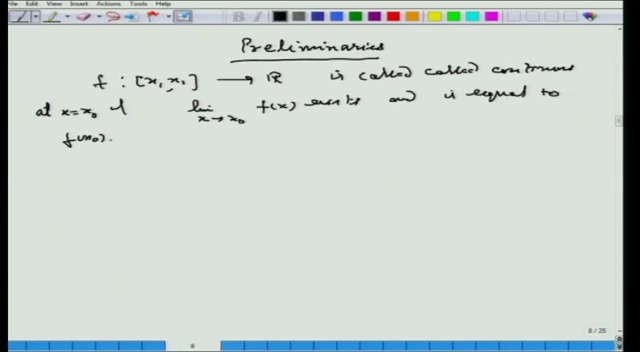 File Edit View Insert Actions Tools Help
Preliminaries
f : [x, x₁] → ℝ is called called continuous
at x=x₀ if lim x→x₀ f(x) exists and is equal to
f(x₀).
8 / 25
8